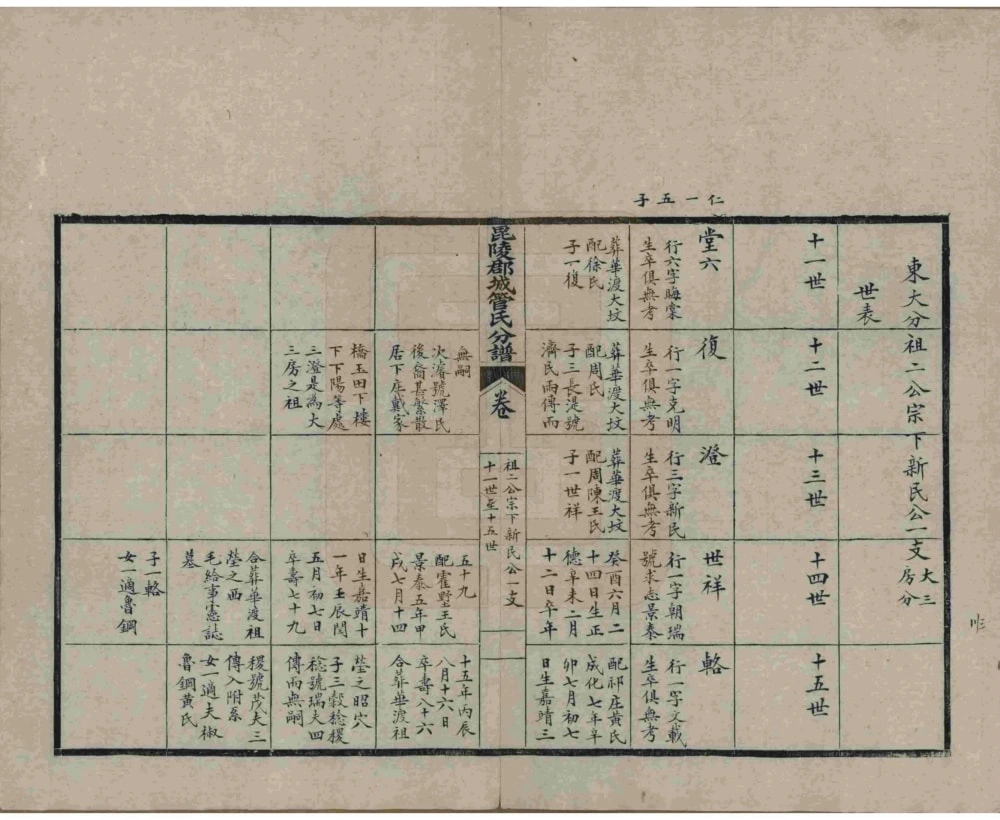 東大分祖二公宗下新民公一支大三房分
世表
十一世
十二世
十三世
十四世
十五世
仁一五子
堂六
行六字晦棠
生卒俱無考
葬華渡大坟
配徐氏
子一復
復
行一字克明
生卒俱無考
葬華渡大坟
配周氏
子三長湜號
濟民兩傳而
無嗣
次濬號澤民
後裔甚繁散
居下庄戴家
橋玉田下樓
下下陽等處
三澄是為大
三房之祖
澄
行三字新民
生卒俱無考
葬華渡大坟
配周陳王氏
子一世祥
世祥
行一字朝瑞
號求志景泰
癸酉六月二
十四日生正
德辛未二月
十二日卒年
五十九
配霍墅王氏
景泰五年甲
戌七月十四
日生嘉靖十
一年壬辰閏
五月初七日
卒壽七十九
合葬華渡祖
塋之西
毛給事憲誌
墓
子一輅
女一適魯鋼
輅
行一字文載
生卒俱無考
配祁庄黃氏
成化七年辛
卯七月初七
日生嘉靖三
十五年丙辰
八月十六日
卒壽八十六
合葬華渡祖
塋之昭穴
子三穀稔稷
稔號瑞夫四
傳而無嗣
稷號茂夫三
傳入附系
女一適夫椒
魯鋼黃氏
毘陵郡城管氏分譜
卷
祖二公宗下新民公一支
十一世至十五世